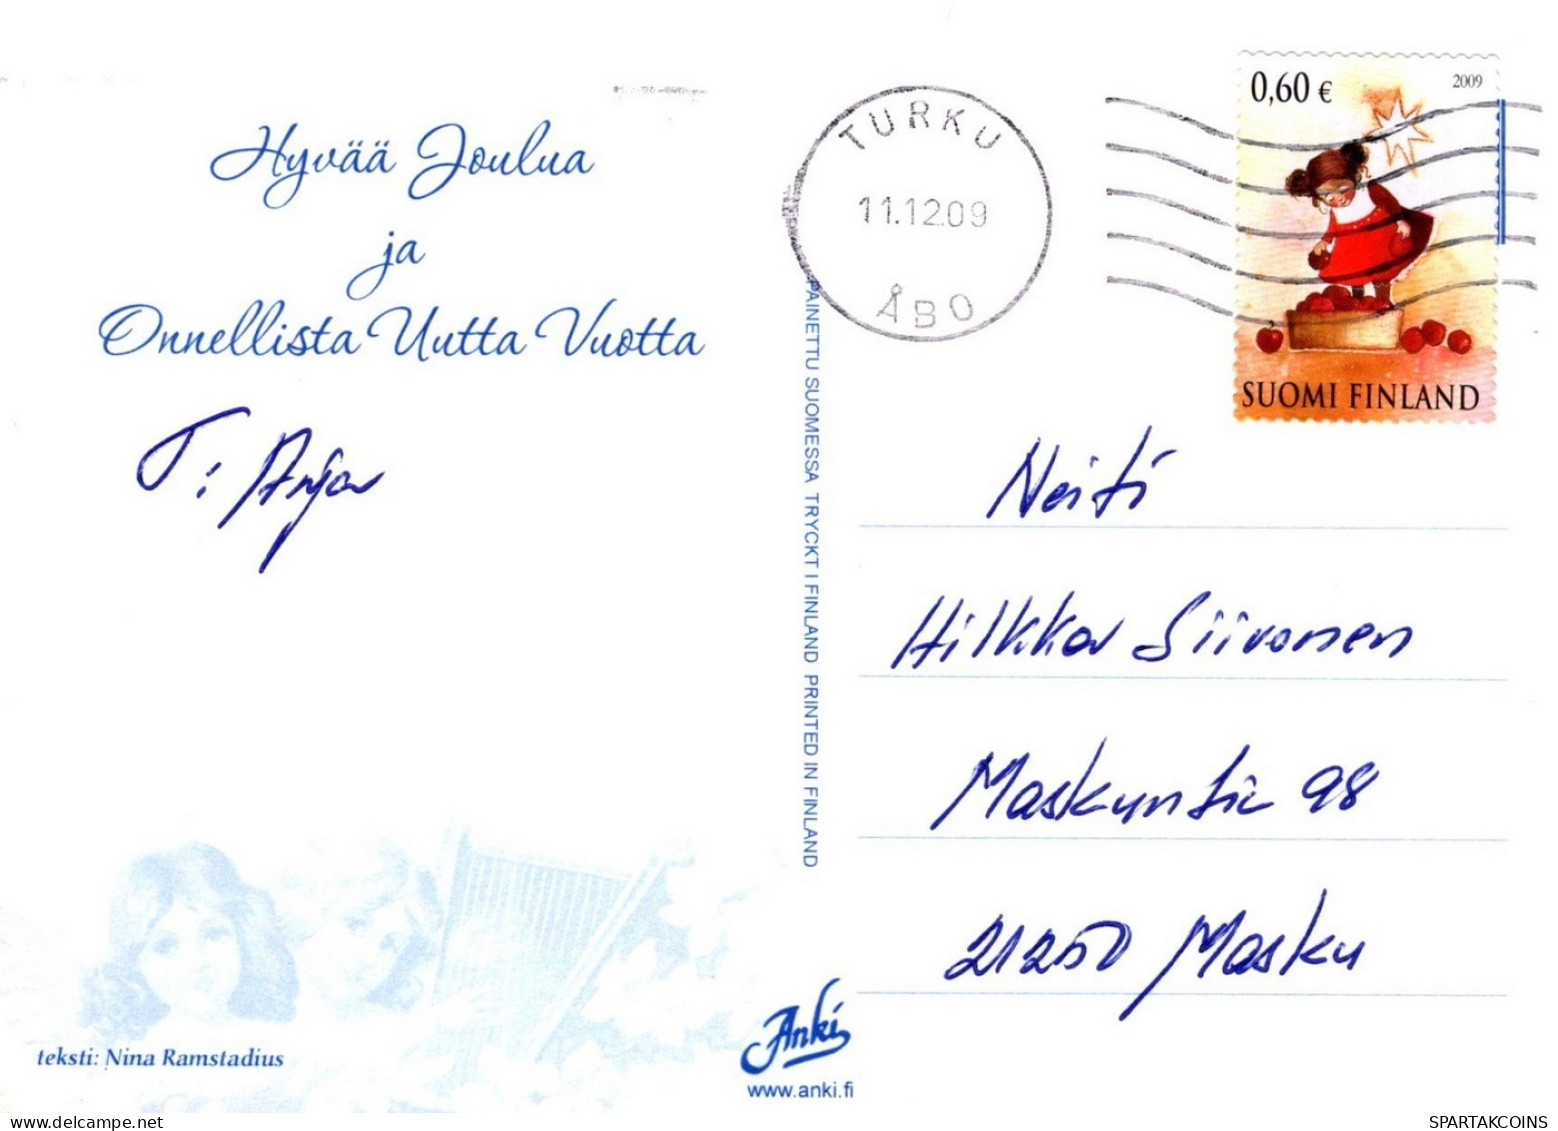 Hyvää Joulua
ja
Onnellista Uutta Vuotta
T: Anja
teksti: Nina Ramstadius
PAINETTU SUOMESSA TRYCKT I FINLAND PRINTED IN FINLAND
Anki
www.anki.fi
TURKU
11.12.09
ÅBO
0,60 €
2009
SUOMI FINLAND
Neiti
Hilkka Siivonen
Maskuntie 98
21250 Masku
SPARTAKCOINS